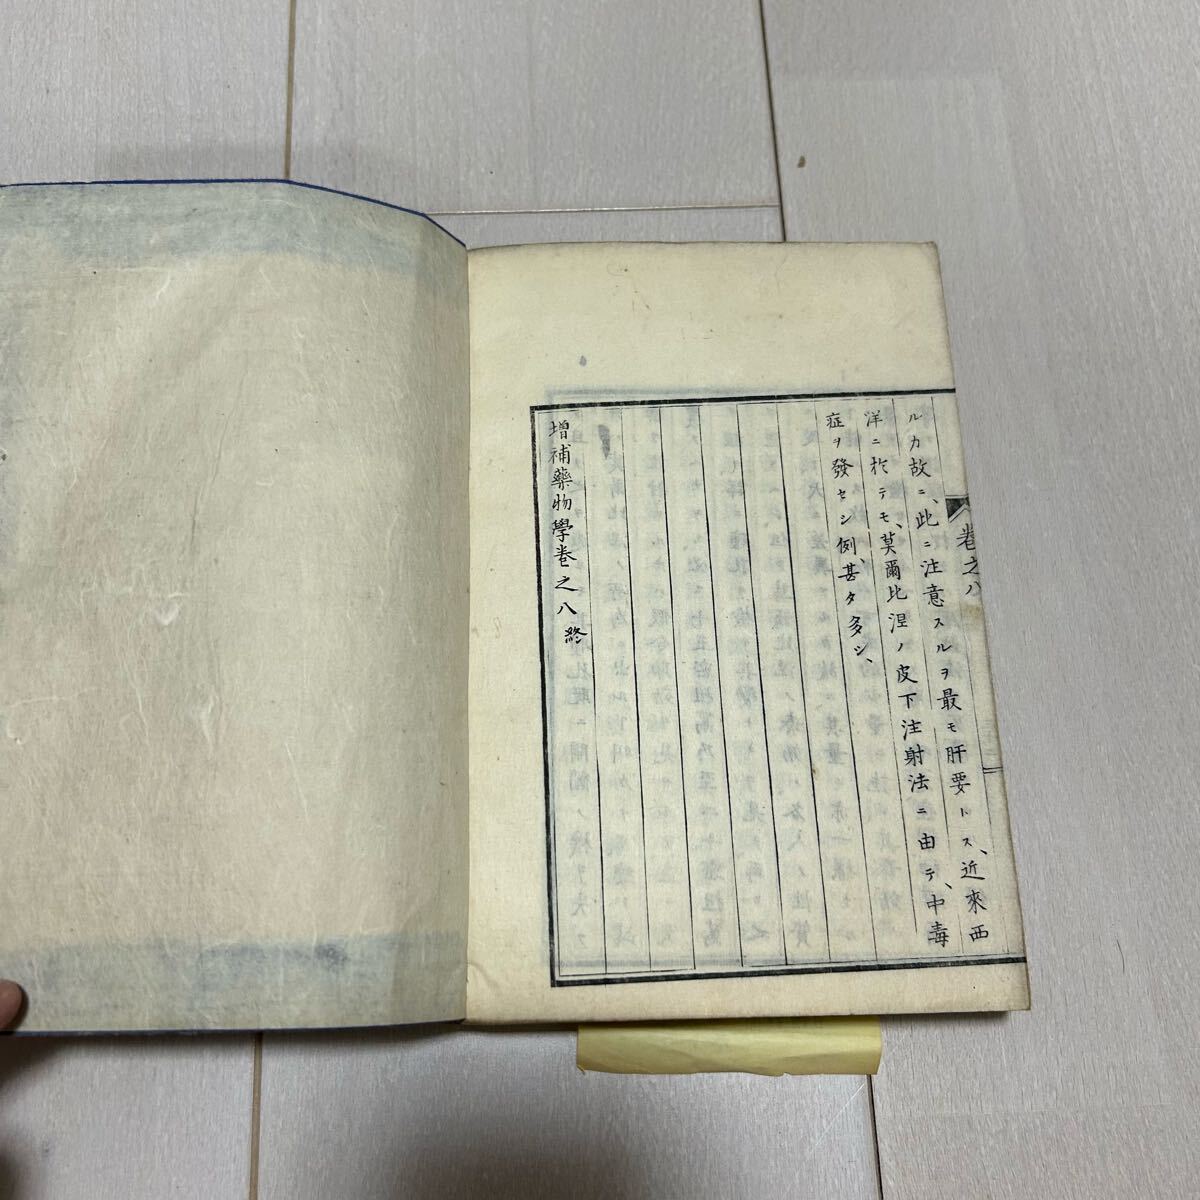 卷之八
ルカ故ニ、此ニ注意スルヲ最モ肝要トス、近來西
洋ニ於テモ、莫爾比涅ノ皮下注射法ニ由テ、中毒
症ヲ發セシ例、甚タ多シ、
增補藥物學卷之八終